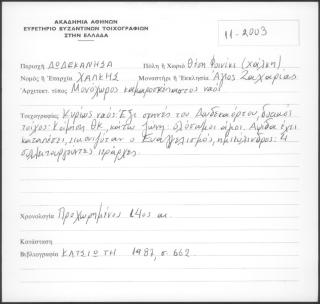 ΑΚΑΔΗΜΙΑ ΑΘΗΝΩΝ
ΕΥΡΕΤΗΡΙΟ ΒΥΖΑΝΤΙΝΩΝ ΤΟΙΧΟΓΡΑΦΙΩΝ
ΣΤΗΝ ΕΛΛΑΔΑ
11-2003
Περιοχή ΔΩΔΕΚΑΝΗΣΑ Πόλη ή Χωριό Θέση Φοινίκι (Χάλκη)
Νομός ή Ἐπαρχία ΧΑΛΚΗΣ Μοναστήρι ή Ἐκκλησία Άγιος Ζαχαρίας
Ἀρχιτεκτ. τύπος Μονόχωρος καμαροσκέπαστος ναός
Τοιχογραφίες Κυρίως ναός: Έξι σκηνές του Δωδεκαόρτου, δυτικός
τοίχος: Κοίμηση ΘΚ, κάτω ζώνη: ολόσωμοι άγιοι. Αψίδα έχει
καταπέσει, εικονιζόταν ο Ευαγγελισμός, ημικύλινδρος: 4
συλλειτουργούντες ιεράρχες.
Χρονολογία Προχωρημένος 14ος αι.
Κατάσταση
Βιβλιογραφία ΚΑΤΣΙΩΤΗ 1987, σ. 662.